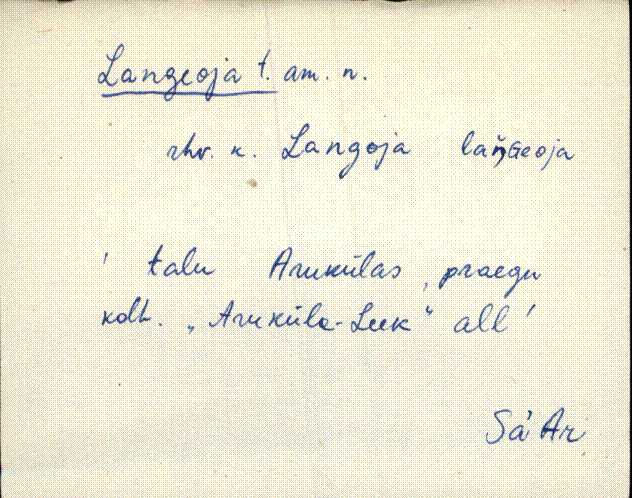 Langeoja t. am. n.
rhv. k. Langoja laŋ̆ɢeoja
' talu Arukülas, praegu
kolh. „Aruküla-Leek" all'
Sa' Ar